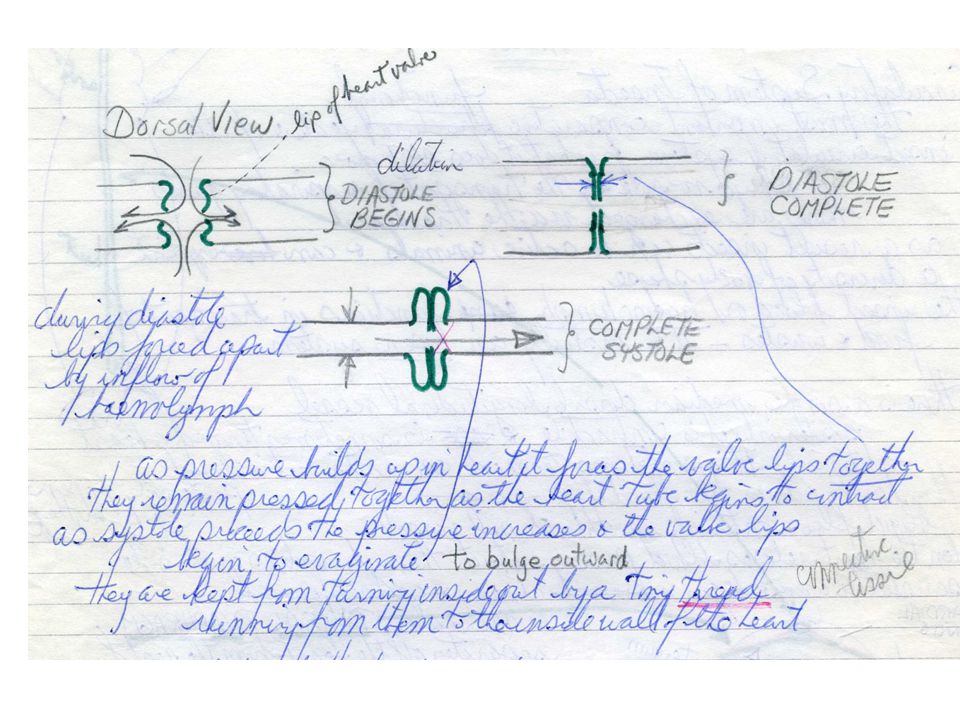 lip of heart valve
Dorsal View
dilation
DIASTOLE
BEGINS
DIASTOLE
COMPLETE
during diastole
lips forced apart
by inflow of
haemolymph
COMPLETE
SYSTOLE
as pressure builds up in heart it forces the valve lips together
they remain pressed together as the heart tube begins to contract
as systole proceeds the pressure increases & the valve lips
begin to evaginate to bulge outward
connective
tissue
they are kept from turning inside out by a tiny thread
running from them to the inside wall of the heart